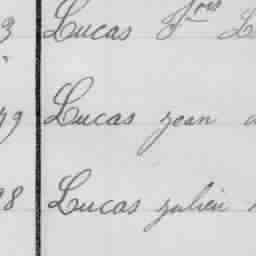 3 Lucas Fres L
79 Lucas jean
98 Lucas julien